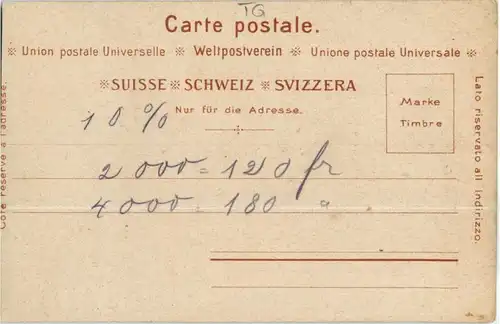 TG
Carte postale.
Union postale Universelle ※ Weltpostverein ※ Unione postale Universale
SUISSE ※ SCHWEIZ ※ SVIZZERA
Nur für die Adresse.
Marke
Timbre
Côté réservé à l'adresse.
Lato riservato all indirizzo.
10 %
2000 = 120 fr
4000 = 180 "